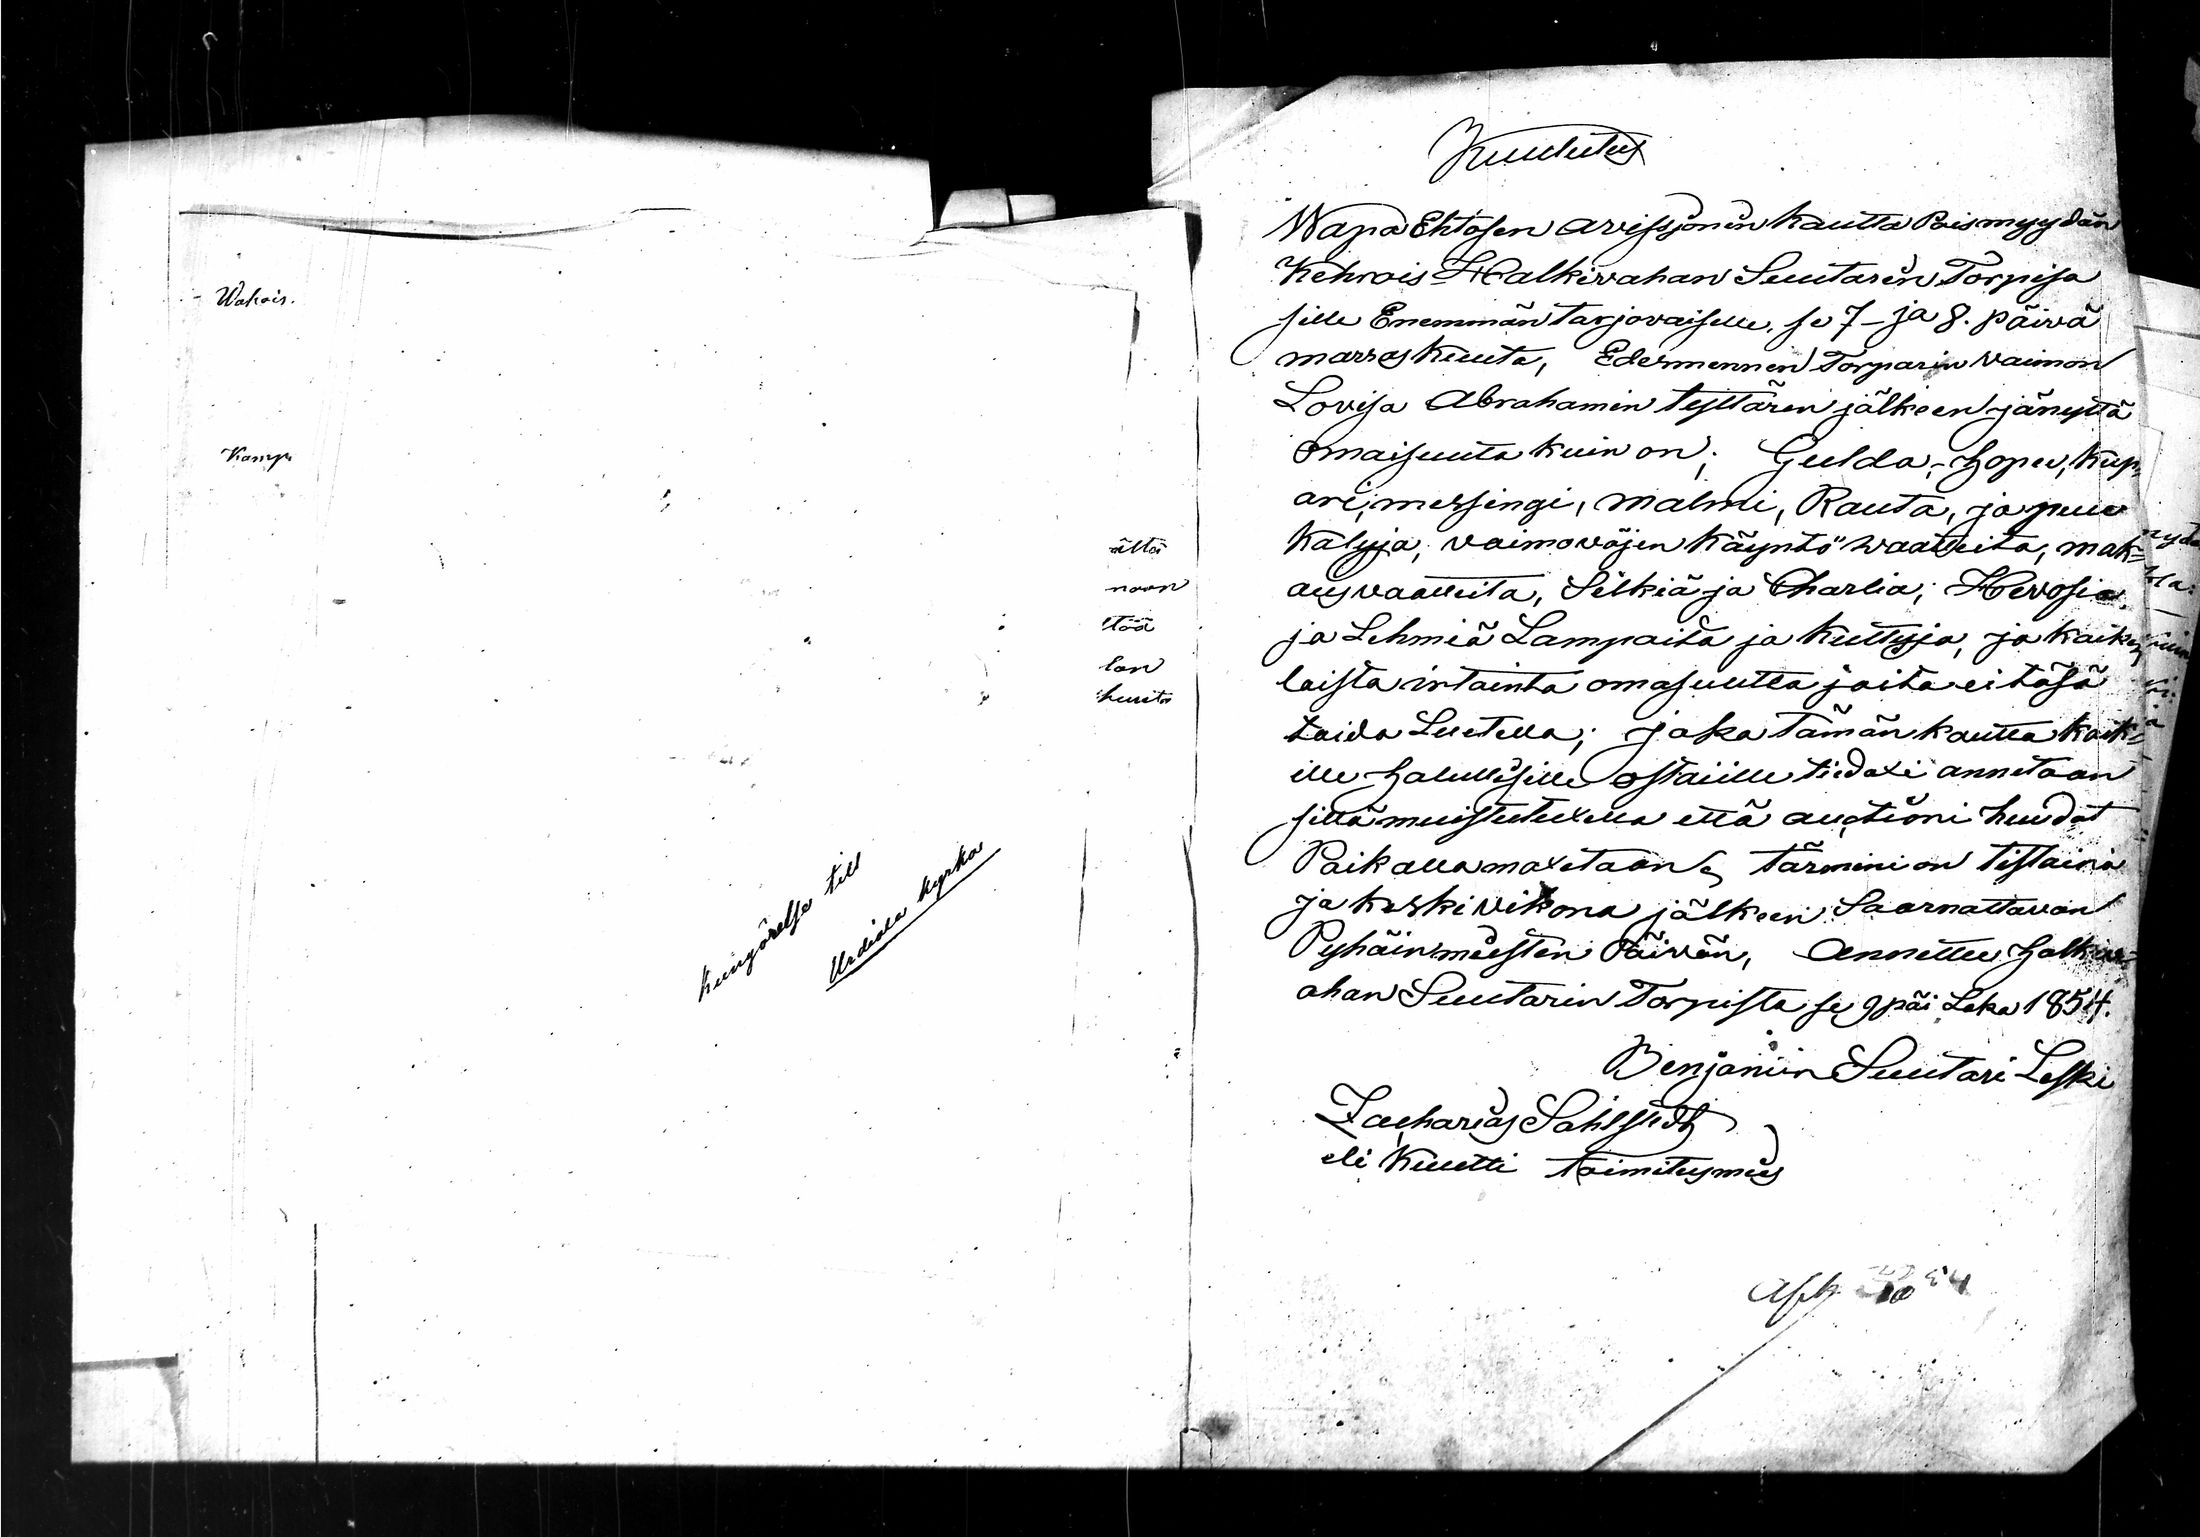 Wahais.
Kamp
ältä
naan
ltää
lan
kuuta
kungörelse till
Urdiala kyrka
Kuulutus
Wapa Ehtosen avissjonin kautta Poismyydän
Kehrois Halkivahan Suutarin Torpisa
sille Enemmän tarjovaiselle, se 7– ja 8. päivä
marraskuuta, Edesmennen Torparin vaimon
Lovisa Abrahamin tyttären jälkeen jänyttä
omaisuuta kuin on; Gulda,- Hopu, kup-
ari, messingi, malmi, Rauta, ja puu
kaluja, vaimoväjen käyntö waatteita, mak=
ausvaatteita, Silkiä ja Charlia; Hevosia
ja Lehmiä Lampaita ja kuttuja, ja kaiken
laista irtainta omasuutta joita ei täsä
taida Luetella; joka tämän kautta kaik=
ille halullisille ostaiille tiedoxi annetaan
sillä muistutuxella että auctioni huudot
Paikalla maxetaan, tärmini on tistaina
ja keskivikona jälkeen Saarnattavan
Pyhäinmiesten Päivän, Annettu Halkiv=
ahan Suutarin Torpista se 9 päi Loka 1854.
Benjamin Suutari Leski
Zacharias Sahlstedt
eli Kuutti toimitusmies